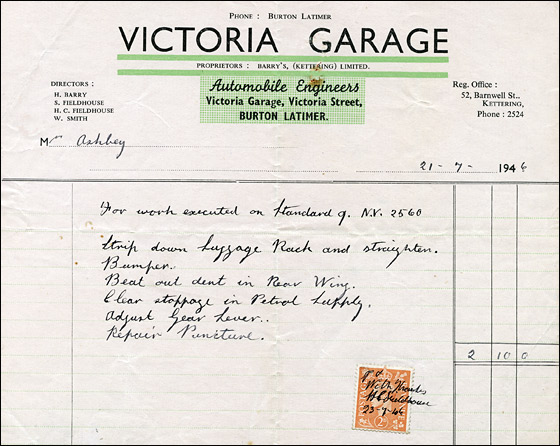 PHONE : BURTON LATIMER
VICTORIA GARAGE
PROPRIETORS : BARRY'S, (KETTERING) LIMITED.
DIRECTORS :
H. BARRY
S. FIELDHOUSE
H. C. FIELDHOUSE
W. SMITH
Automobile Engineers
Victoria Garage, Victoria Street,
BURTON LATIMER.
Reg. Office :
52, Barnwell St.,
KETTERING,
Phone : 2524
Mr Ashbey
21 - 7 - 1946
For work executed on Standard 9. N.V. 2560
Strip down Luggage Rack and straighten.
Bumper.
Beat out dent in Rear Wing.
Clear stoppage in Petrol Supply.
Adjust Gear Lever.
Repair Puncture.
2 10 0
With Thanks
H C Fieldhouse
23-7-46